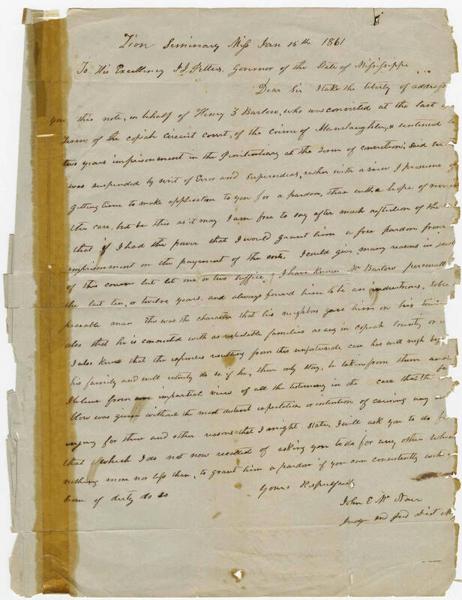 Zion Seminary Miss Jan 15th 1861
To His Excellency J J Pettus, Governor of the State of Mississippi
Dear Sir I take the liberty of address
you this note, in behalf of Henry Barlow, who was convicted at the last
Term of the Copiah Circuit Court, of the Crime of Manslaughter, & sentenced
two years imprisonment in the Penitentiary at the Term of conviction; Said
was suspended by writ of Error and Supersedeas, rather with a view I presume of
getting time to make application to you for a pardon, than with a hope of
the case, but be this as it may I am free to say after much reflection of the
that if I had the power that I would grant him a free pardon from
imprisonment on the payment of the costs. I could give many reasons in
of this course but let one or two suffice; I have known Mr Barlow personally
the last ten, or twelve years, and always found him to be an industrious,
peacable man this was the character that his neighbors gave him on his
also that he is connected with as respectable families as any in Copiah County,
I also know that the expenses resulting from this unfortunate case has well nigh
his family and will entirely do so if he, their only stay, be taken from them
I believe from an impartial view of all the testimony in the case that the
blow was given without the most distant expectation or intention of causing any
injury for these and other reasons that I might state, I will ask you to do
that which I do not now recollect of asking you to do for any other
nothing more nor less than, to grant him a pardon if you can consistently with
of duty do so
Yours Respectfully
John E McNair
Judge